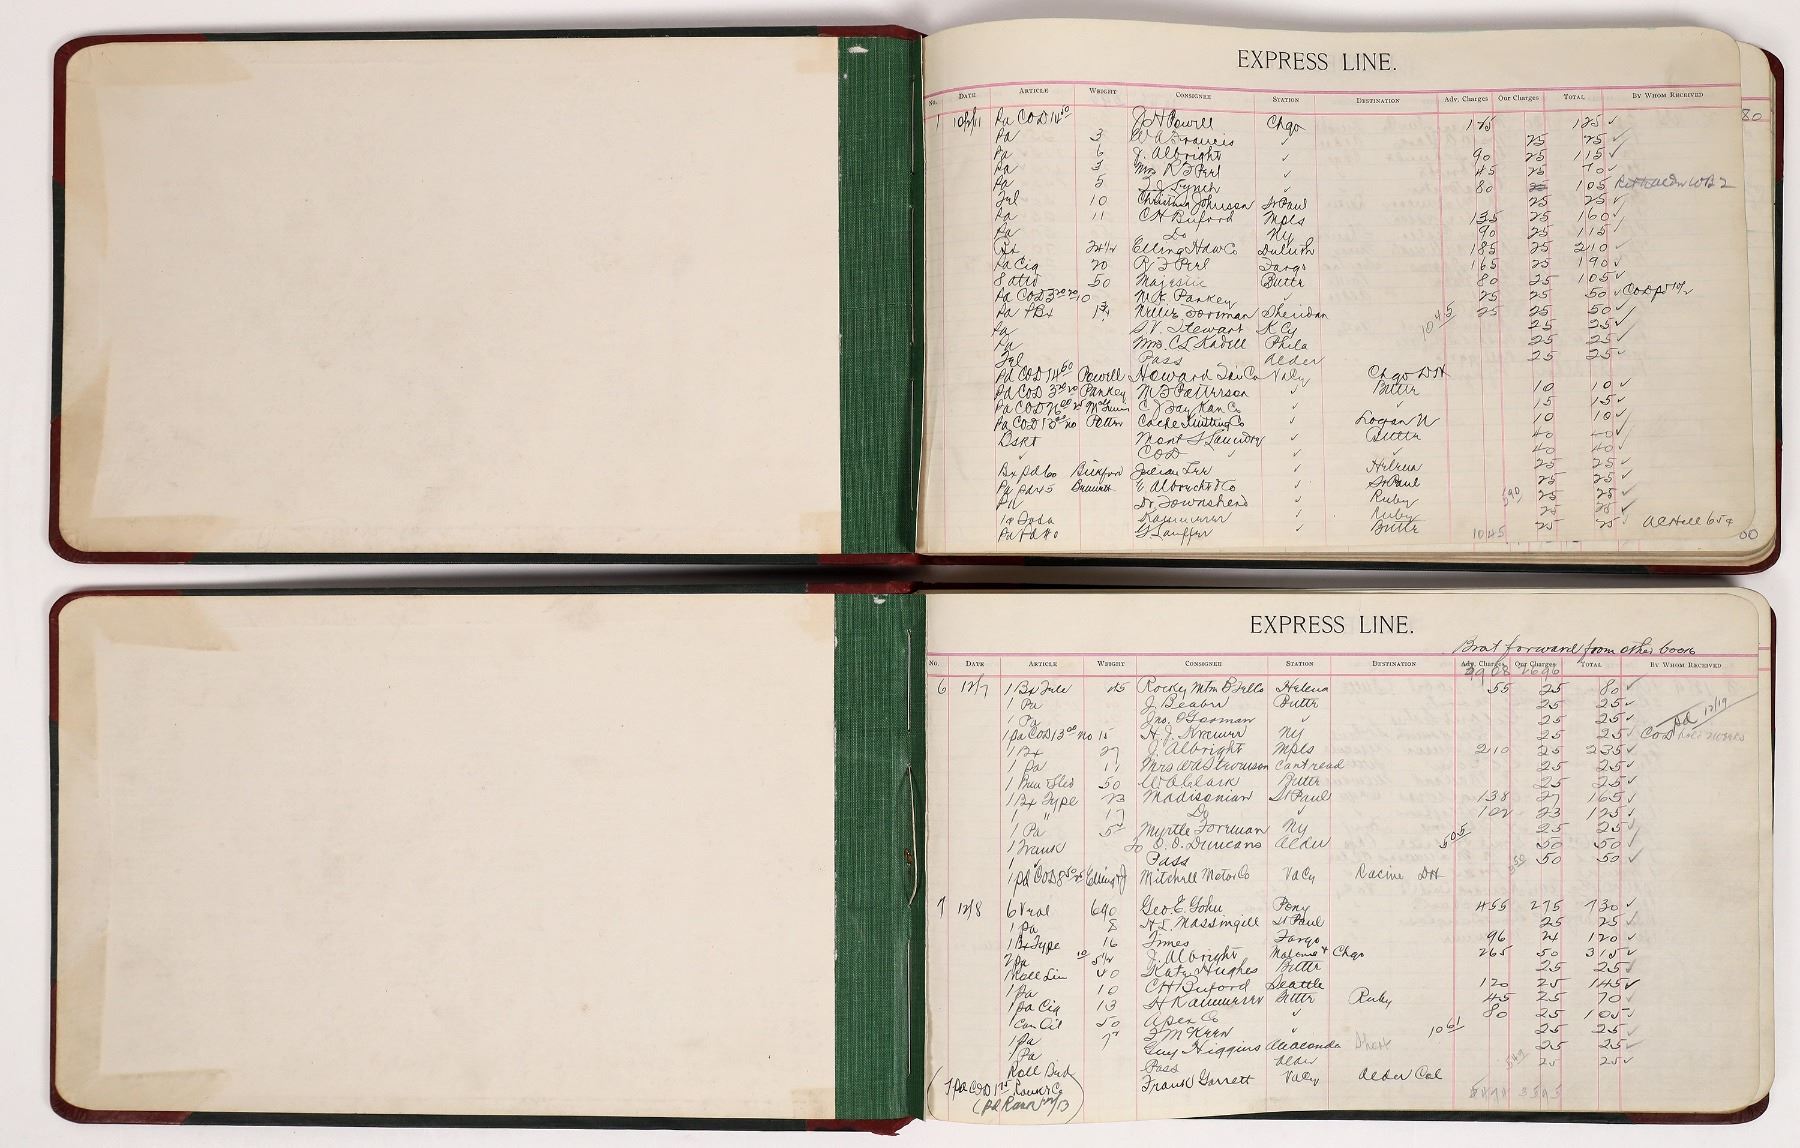 EXPRESS LINE.
No. DATE ARTICLE WEIGHT CONSIGNEE STATION DESTINATION Adv. Charges Our Charges TOTAL BY WHOM RECEIVED
80
1 10/2/11 Pa COD 14 50 J H Powell Chgo 125 125 ✓
Pa 3 W A Francis ✓ 25 25 ✓
Pa 6 J. Albright ✓ 90 25 115 ✓
Pa 3 Mrs R F Perl ✓ 45 25 70 ✓
Pa 5 J. J. Lynch ✓ 80 25 105 WB 2
Jul 10 Christina Johnson St Paul 25 25 ✓
Pa 11 C H Buford Mpls 135 25 160 ✓
Pa Do Ny 90 25 115 ✓
Bx 24½ Elling Hdw Co Duluth 185 25 210 ✓
Pa Cig 20 R F Perl Fargo 165 25 190 ✓
50 Majestic Butte 80 25 105 ✓
Pa COD 3 20 10 M K Pankey ✓ 25 25 50 ✓
Pa & Bx Nellie Forman Sheridan 1045 25 25 50 ✓
Pa S. V. Stewart K Cy 25 25 ✓
Pa Mrs. C L Kadell Phila 25 25 ✓
Jul Pass Alder 25 25 ✓
Pd COD 14 50 Powell Howard Co Va Cy Chgo DH
Pa COD 3 20 Pankey M F Patterson ✓ Butte 10 10 ✓
Pa COD C J Day Kan Co ✓ ✓ 15 15 ✓
Pa COD 13 00 no Potter Cache Co ✓ Logan U 10 10 ✓
Bskt Mont S Laundry ✓ Butte 40 40 ✓
✓ COD ✓ ✓ ✓ 40 40 ✓
Bx pd 60 Bickford Julian Lee ✓ Helena 25 25 ✓
Pa pd 45 Bennett E Albrecht & Co ✓ St Paul 25 25 ✓
Pa Dr. Townshend ✓ Ruby 590 25 25 ✓
Kammerer Ruby 25 25 ✓
Pa Pd 40 G Lauffer ✓ Butte 1045 25 25 ✓ Al Hill 65¢
00
EXPRESS LINE.
Brot forward from other book
No. DATE ARTICLE WEIGHT CONSIGNEE STATION DESTINATION Adv. Charges Our Charges TOTAL BY WHOM RECEIVED
6 12/7 1 Bx Tele 45 Rocky Mtn B Tello Helena 55 25 80 ✓
1 Pa J. Beaber Butte 25 25 ✓
1 Pa Jno. O Gorman ✓ 25 25 ✓ Pd 12/19
1 Pa COD 13 00 no 15 H. J. Kramer Ny 25 25 ✓ COD
1 Bx 27 J. Albright Mpls 210 25 235 ✓
1 Pa 17 Mrs Wd Strowison Cantread 25 25 ✓
50 W A Clark Butte 25 25 ✓
1 Bx Type 23 Madisonian St Paul 138 27 165 ✓
1 " 17 Do ✓ 102 23 125 ✓
1 Pa Myrtle Foreman Ny 25 25 ✓
1 Trunk To O. D. Duncans Alder 505 50 50 ✓
1 ✓ Pass 50 50 ✓
1 pd COD 8 50 Elling & J Mitchell Motor Co Va Cy Racine DH
7 12/8 6 Veal 690 Geo. E. Gohn Pony 455 275 730 ✓
1 Pa 8 H. L. Massingill St Paul 25 25 ✓
1 Bx Type 16 Times Fargo 96 24 120 ✓
2 Pa 10 5½ J. Albright Malone & Chgo 265 50 315 ✓
1 Roll Lin 40 Kate Hughes Butte 25 25 ✓
1 Pa 10 C H Buford Seattle 120 25 145 ✓
1 Pa Cig 13 H Kammerer Butte Ruby 45 25 70 ✓
1 Can Oil 50 Apex Co ✓ 80 25 105 ✓
1 Pa F McKeen ✓ 1061 25 25 ✓
1 Pa Guy Higgins Anaconda Short 25 25 ✓
Roll Bed Pass Alder 549 25 25 ✓
1 Pa COD 1 75 Rank & Co Frank Garrett Va Cy Alder Col
(pd Rank